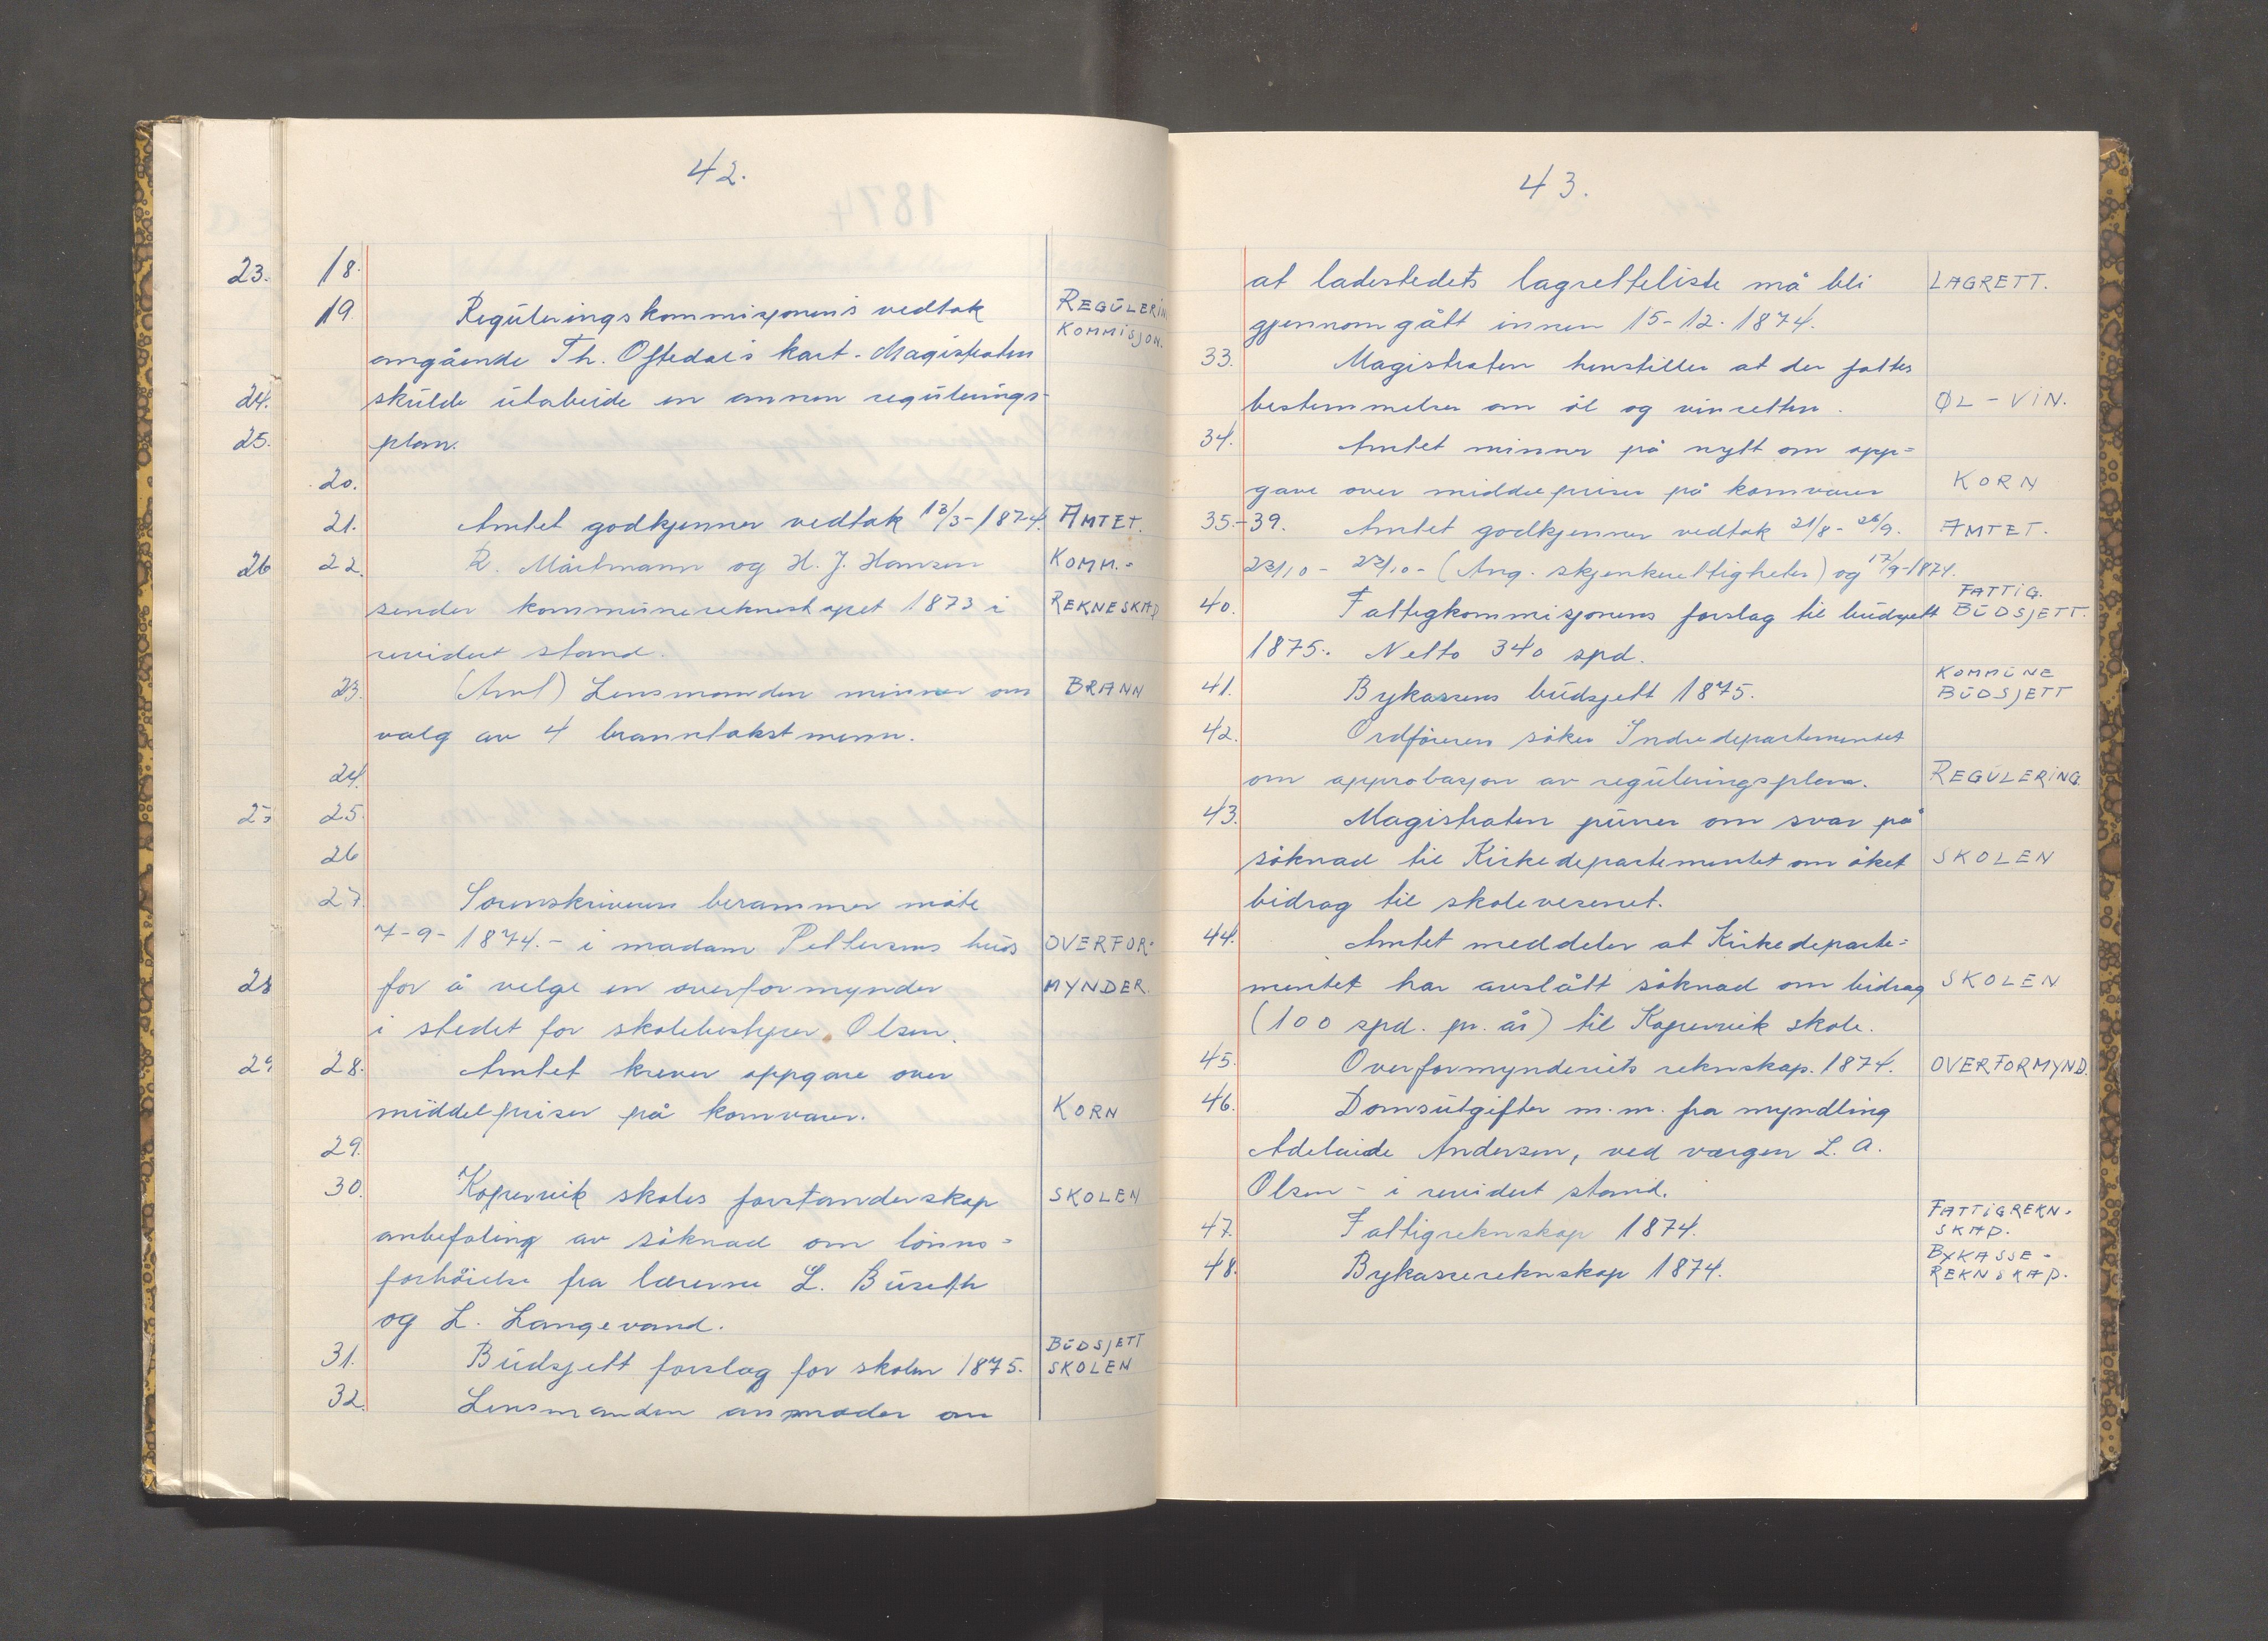 42.
23. 18.
19. Reguleringskommisjonens vedtak REGULERIN
KOMMISJON.
angående Th. Oftedals kart. Magistraten
24. skulde utarbeide en annen regulerings-
25. plan.
20.
21. Amtet godkjenner vedtak 13/3-1874. AMTET.
26 22. R. og H. J. Hansen KOMM.-
sender kommuneregnskapet 1873 i REKNESKAP
revidert stand.
23. (Amt) Lensmanden minner om BRANN
valg av 4 branntakstmenn.
24.
27 25.
26
27. Sorenskriveren berammer möte
7-9-1874.- i madam Pettersens hus OVERFOR-
28 for å velge en overformynder MYNDER.
i stedet for skolebestyrer Olsen.
29 28. Amtet krever oppgave over
middelpriser på kornvarer. KORN
29.
30. Kopervik skoles forstanderskap SKOLEN
anbefaling av söknad om lönns=
forhöielse fra lærerne L. Buseth
og L. Langevand.
31. Budsjett forslag for skolen 1875. BUDSJETT
SKOLEN
32. Lensmanden anmoder om
43.
at ladestedets lagretteliste må bli LAGRETT.
gjennomgått innen 15-12-1874.
33. Magistraten henstiller at der fattes
bestemmelser om öl og vinretten. ØL-VIN.
34. Amtet minner på nytt om opp=
gave over middelpriser på kornvarer KORN
35.-39. Amtet godkjenner vedtak 21/8- 26/9. AMTET.
23/10- 23/10- (Ang. skjenkerettigheter) og 17/9-1874.
40. Fattigkommisjonens forslag til budsjett FATTIG.
BUDSJETT.
1875. Netto 340 spd.
41. Bykassens budsjett 1875. KOMMUNE
BUDSJETT
42. Ordföreren söker Indredepartementet
om approbasjon av reguleringsplan. REGULERING.
43. Magistraten purrer om svar på
söknad til Kirkedepartementet om öket SKOLEN
bidrag til skolevesenet.
44. Amtet meddeler at Kirkedeparte=
mentet har avslått söknad om bidrag SKOLEN
(100 spd. pr. år) til Kopervik skole.
45. Overformynderiets reknskap. 1874. OVERFORMYND.
46. Domsutgifter m.m. fra myndling
Adelaide Andersen, ved vergen L. A.
Olsen - i revidert stand.
47. Fattigreknskap 1874. FATTIGREKN-
SKAP.
48. Bykassereknskap 1874. BYKASSE-
REKNSKAP.